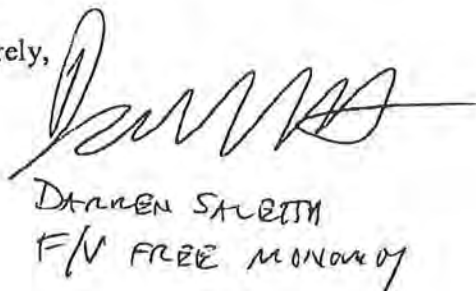 rely,
DARREN SALETTA
F/V FREE MONOMOY